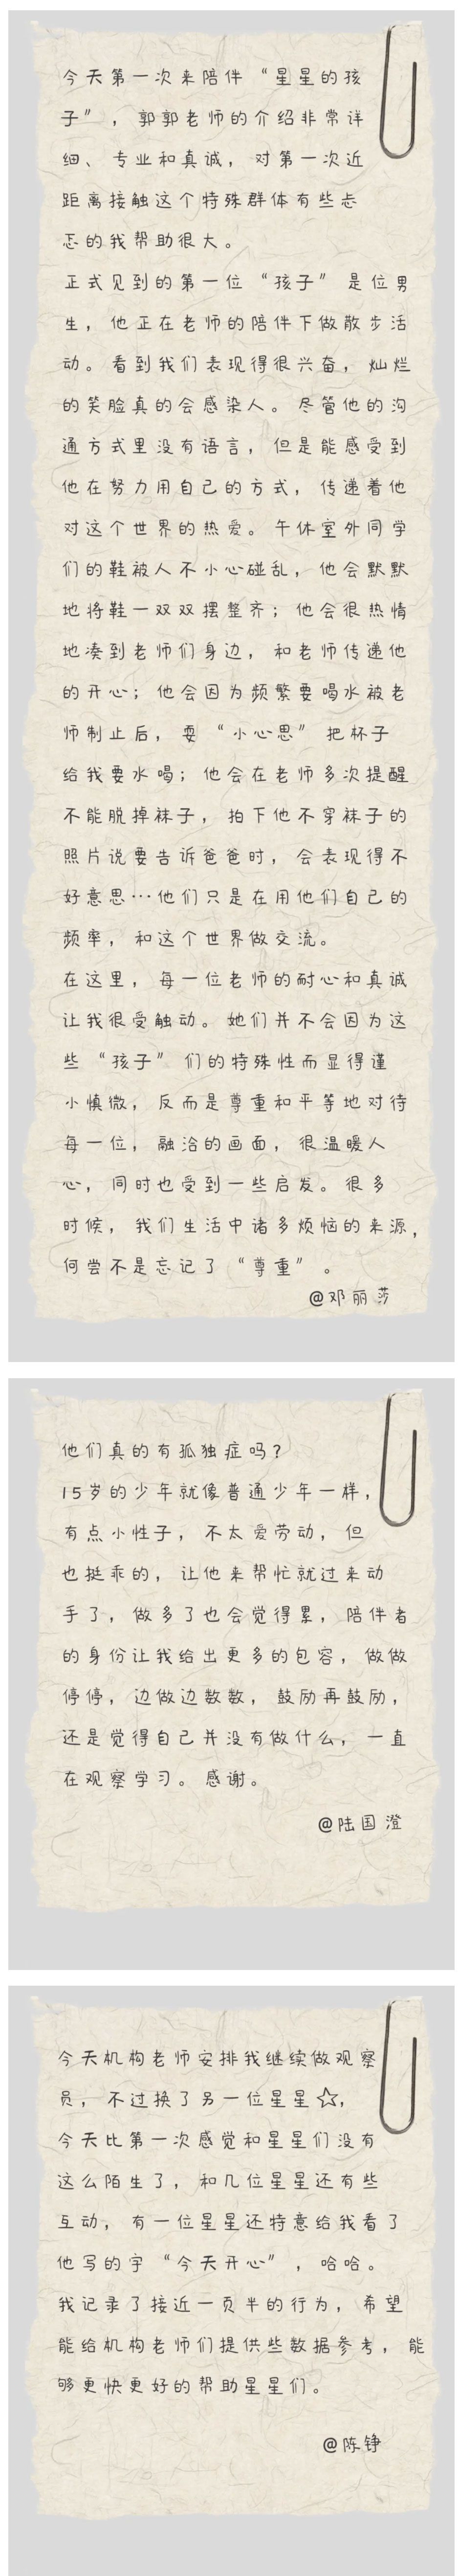 今天第一次来陪伴“星星的孩
子”，郭郭老师的介绍非常详
细、专业和真诚，对第一次近
距离接触这个特殊群体有些忐
忑的我帮助很大。
正式见到的第一位“孩子”是位男
生，他正在老师的陪伴下做散步活
动。看到我们表现得很兴奋，灿烂
的笑脸真的会感染人。尽管他的沟
通方式里没有语言，但是能感受到
他在努力用自己的方式，传递着他
对这个世界的热爱。午休室外同学
们的鞋被人不小心碰乱，他会默默
地将鞋一双双摆整齐；他会很热情
地凑到老师们身边，和老师传递他
的开心；他会因为频繁要喝水被老
师制止后，耍“小心思”把杯子
给我要水喝；他会在老师多次提醒
不能脱掉袜子，拍下他不穿袜子的
照片说要告诉爸爸时，会表现得不
好意思…他们只是在用他们自己的
频率，和这个世界做交流。
在这里，每一位老师的耐心和真诚
让我很受触动。她们并不会因为这
些“孩子”们的特殊性而显得谨
小慎微，反而是尊重和平等地对待
每一位，融洽的画面，很温暖人
心，同时也受到一些启发。很多
时候，我们生活中诸多烦恼的来源，
何尝不是忘记了“尊重”。
@邓丽莎
他们真的有孤独症吗？
15岁的少年就像普通少年一样，
有点小性子，不太爱劳动，但
也挺乖的，让他来帮忙就过来动
手了，做多了也会觉得累，陪伴者
的身份让我给出更多的包容，做做
停停，边做边数数，鼓励再鼓励，
还是觉得自己并没有做什么，一直
在观察学习。感谢。
@陆国澄
今天机构老师安排我继续做观察
员，不过换了另一位星星☆，
今天比第一次感觉和星星们没有
这么陌生了，和几位星星还有些
互动，有一位星星还特意给我看了
他写的字“今天开心”，哈哈。
我记录了接近一页半的行为，希望
能给机构老师们提供些数据参考，能
够更快更好的帮助星星们。
@陈铮